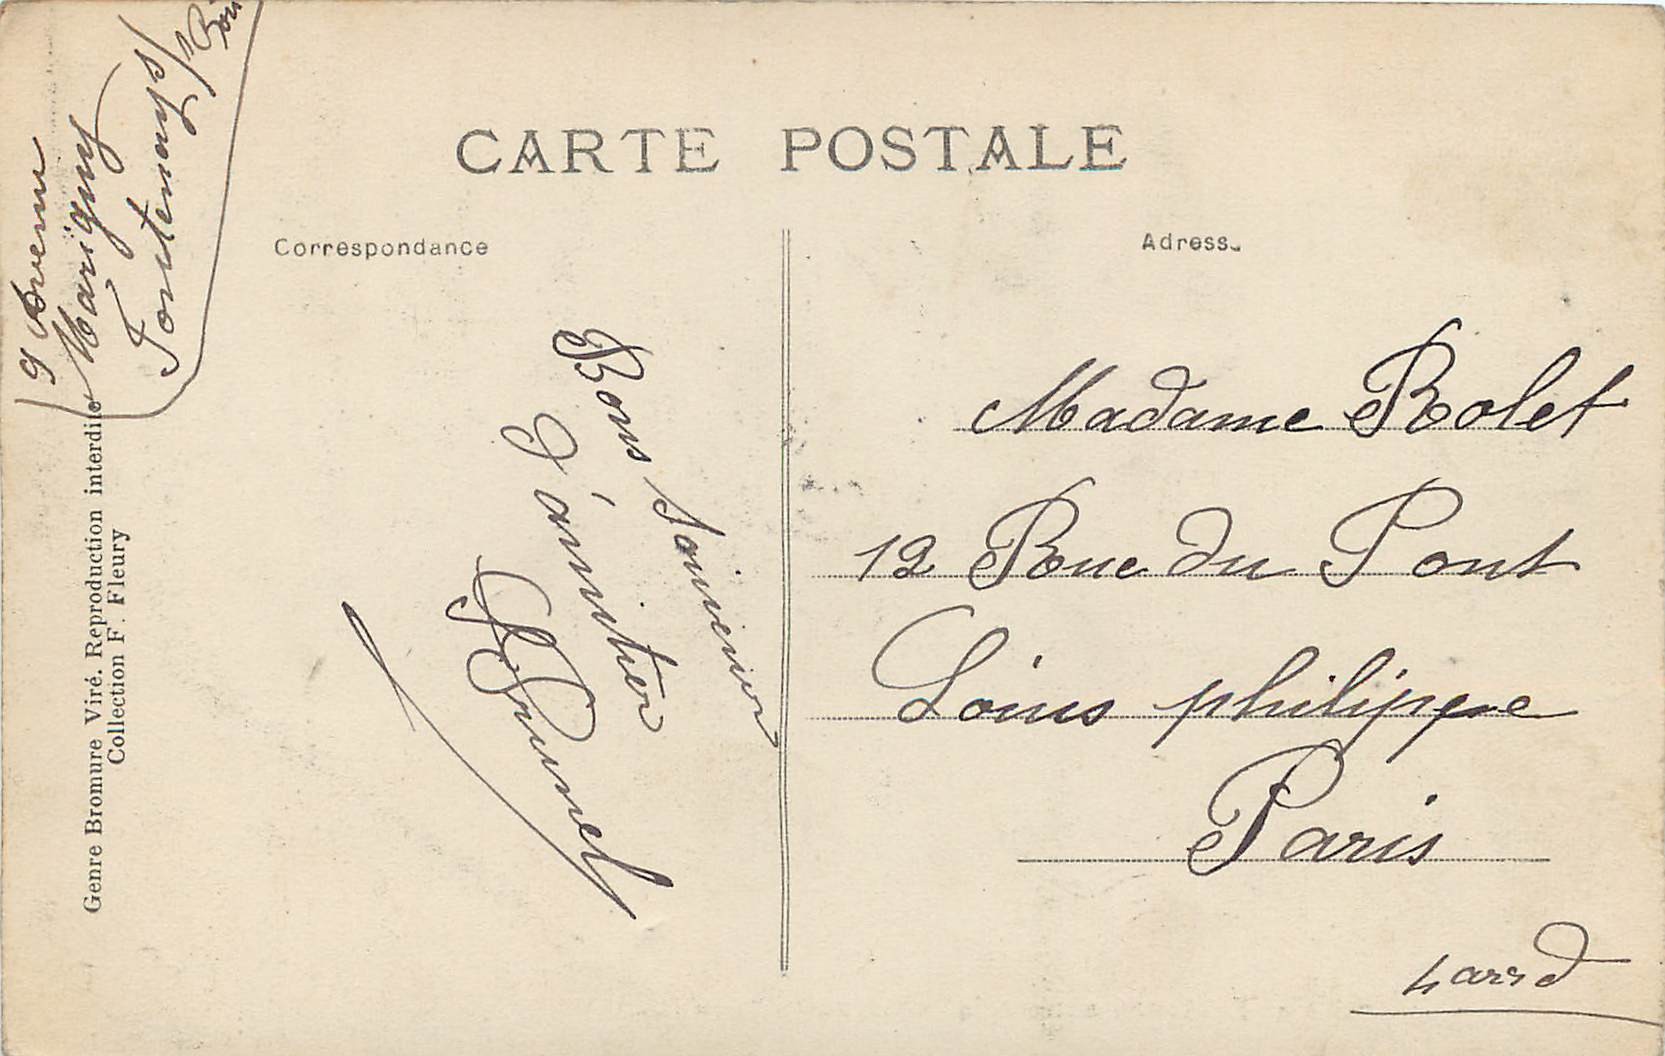 9 Avenue
Marigny
Fontenay s/s Bois
CARTE POSTALE
Correspondance
Adresse
Bons Souvenir
d'amitier
Madame Rolet
12 Rue du Pont
Louis philippe
Paris
4 arrd
Genre Bromure Viré. Reproduction interdite
Collection F. Fleury